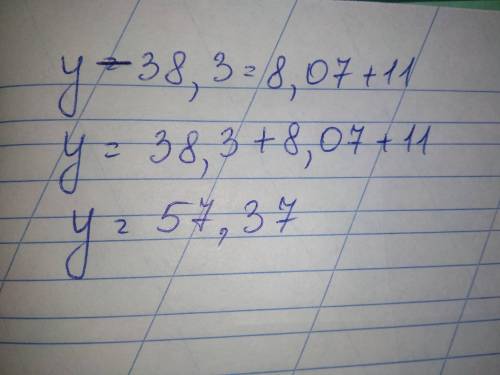 y - 38,3 = 8,07 + 11
y = 38,3 + 8,07 + 11
y = 57,37